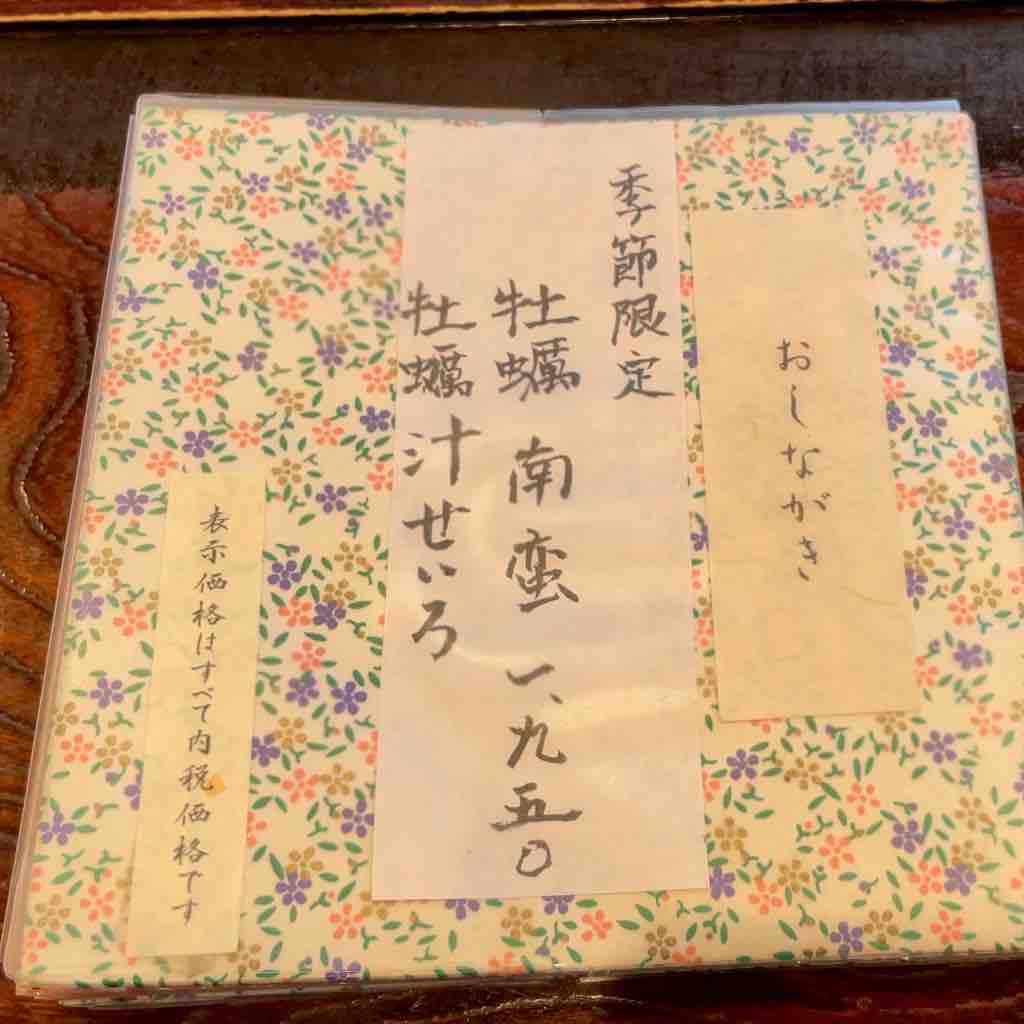 おしながき
季節限定
牡蠣南蛮 一、九五〇
牡蠣汁せいろ
表示価格はすべて内税価格です